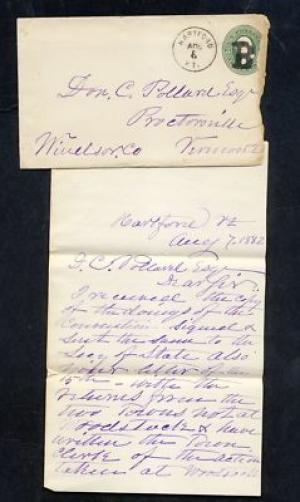 HARTFORD
AUG
6
VT.
B
Don. C. Pollard Esq
Proctorsville
Windsor. Co Vermont
Hartford Vt
Aug 7, 1882
D. C. Pollard Esq
Dear Sir.
I received the copy
of the doings of the
Convention signed &
sent the same to the
Secy of State also
your letter of the
5th - with the
returns from the
two Towns not at
Woodstock & have
written the Town
Clerk of the action
taken at